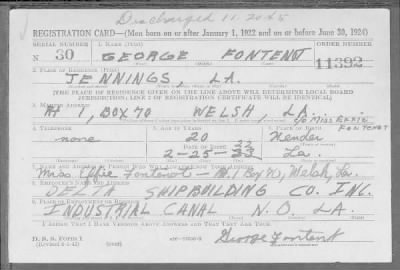 Discharged 11.20.45
REGISTRATION CARD—(Men born on or after January 1, 1922 and on or before June 30, 1924)
SERIAL NUMBER 1. NAME (Print) ORDER NUMBER
N 30 GEORGE FONTENOT 11392
2. PLACE OF RESIDENCE (Print)
JENNINGS, LA.
[THE PLACE OF RESIDENCE GIVEN ON THE LINE ABOVE WILL DETERMINE LOCAL BOARD
JURISDICTION; LINE 2 OF REGISTRATION CERTIFICATE WILL BE IDENTICAL]
3. MAILING ADDRESS
Rt, BOX 70 WELSH, LA.
c/o MISS EFFIE FONTENOT
4. TELEPHONE 5. AGE IN YEARS 6. PLACE OF BIRTH
none 20 Kender
DATE OF BIRTH 22
2-25-23 La.
7. NAME AND ADDRESS OF PERSON WHO WILL ALWAYS KNOW YOUR ADDRESS
Miss. Effie Fontenot - Rt. 1 Box 70, Welsh, La.
8. EMPLOYER'S NAME AND ADDRESS
DELTA SHIPBUILDING CO. INC.
9. PLACE OF EMPLOYMENT OR BUSINESS
INDUSTRIAL CANAL N.O. LA.
I AFFIRM THAT I HAVE VERIFIED ABOVE ANSWERS AND THAT THEY ARE TRUE.
D. S. S. Form 1
George Fontenot